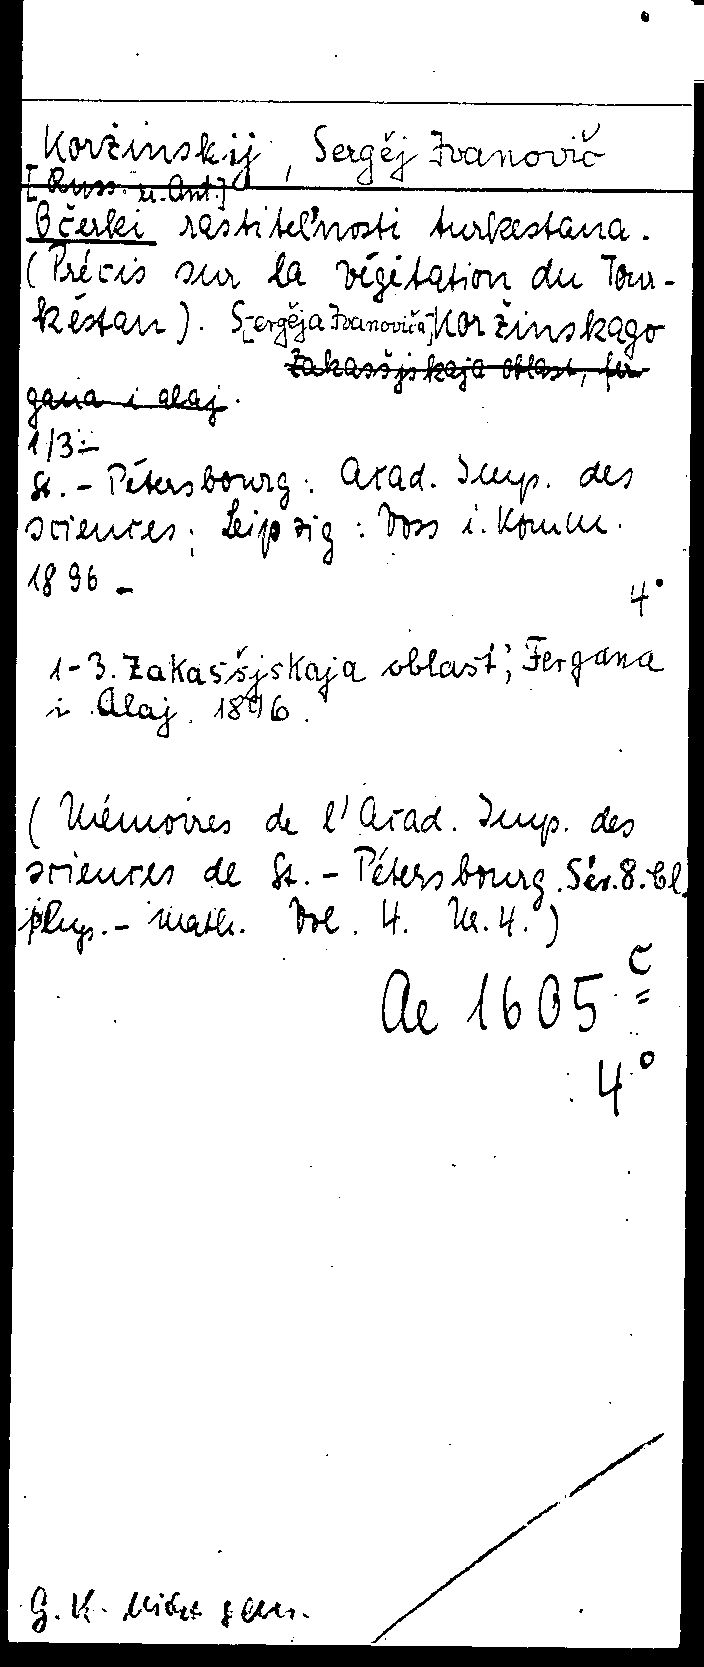 Koržinskij, Sergěj Ivanovič
[Russ. u. Ant.]
Očerki rastitel'nosti turkestana.
(Précis sur la végétation du Tour-
késtan). S[ergěja Ivanoviča] Koržinskago
Zakasšjskaja oblast, fer
gana i alaj.
1/3 =
St.-Pétersbourg: Acad. Imp. des
sciences; Leipzig: Voss i. Komm.
1896 -
4°
1-3. Zakasšjskaja oblast'; Fergana
i Alaj. 1896.
(Mémoires de l'Acad. Imp. des
sciences de St.-Pétersbourg. Sér. 8. Cl.
phys.-math. Vol. 4. Nr. 4.)
Ae 1605 c
4°
G. K. nicht